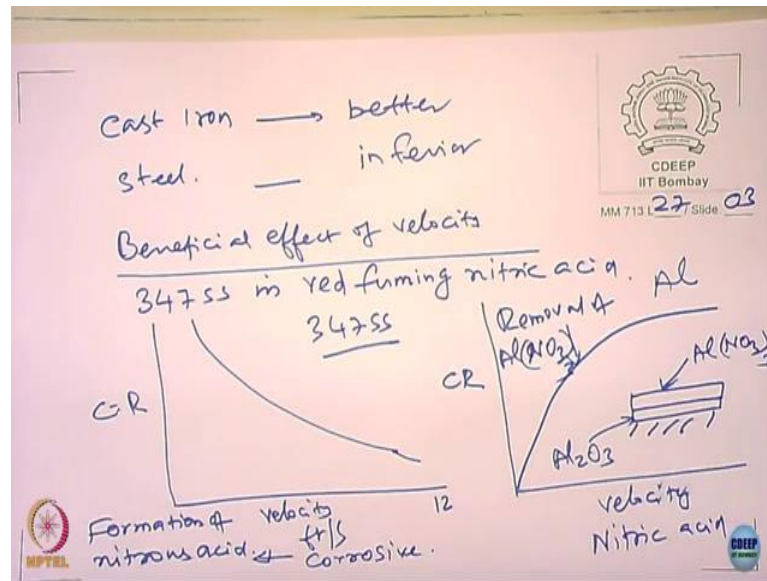 Cast Iron → better
steel. — inferior
CDEEP
IIT Bombay
MM 713 L 27 / Slide 03
Beneficial effect of velocity
347SS in red fuming nitric acid.
347SS
CR
12
velocity
ft/s
Formation of
nitrous acid. ← corrosive.
Al
Removal of
Al(NO3)
CR
Al(NO3)
Al2O3
velocity
Nitric acid
NPTEL
CDEEP
IIT BOMBAY